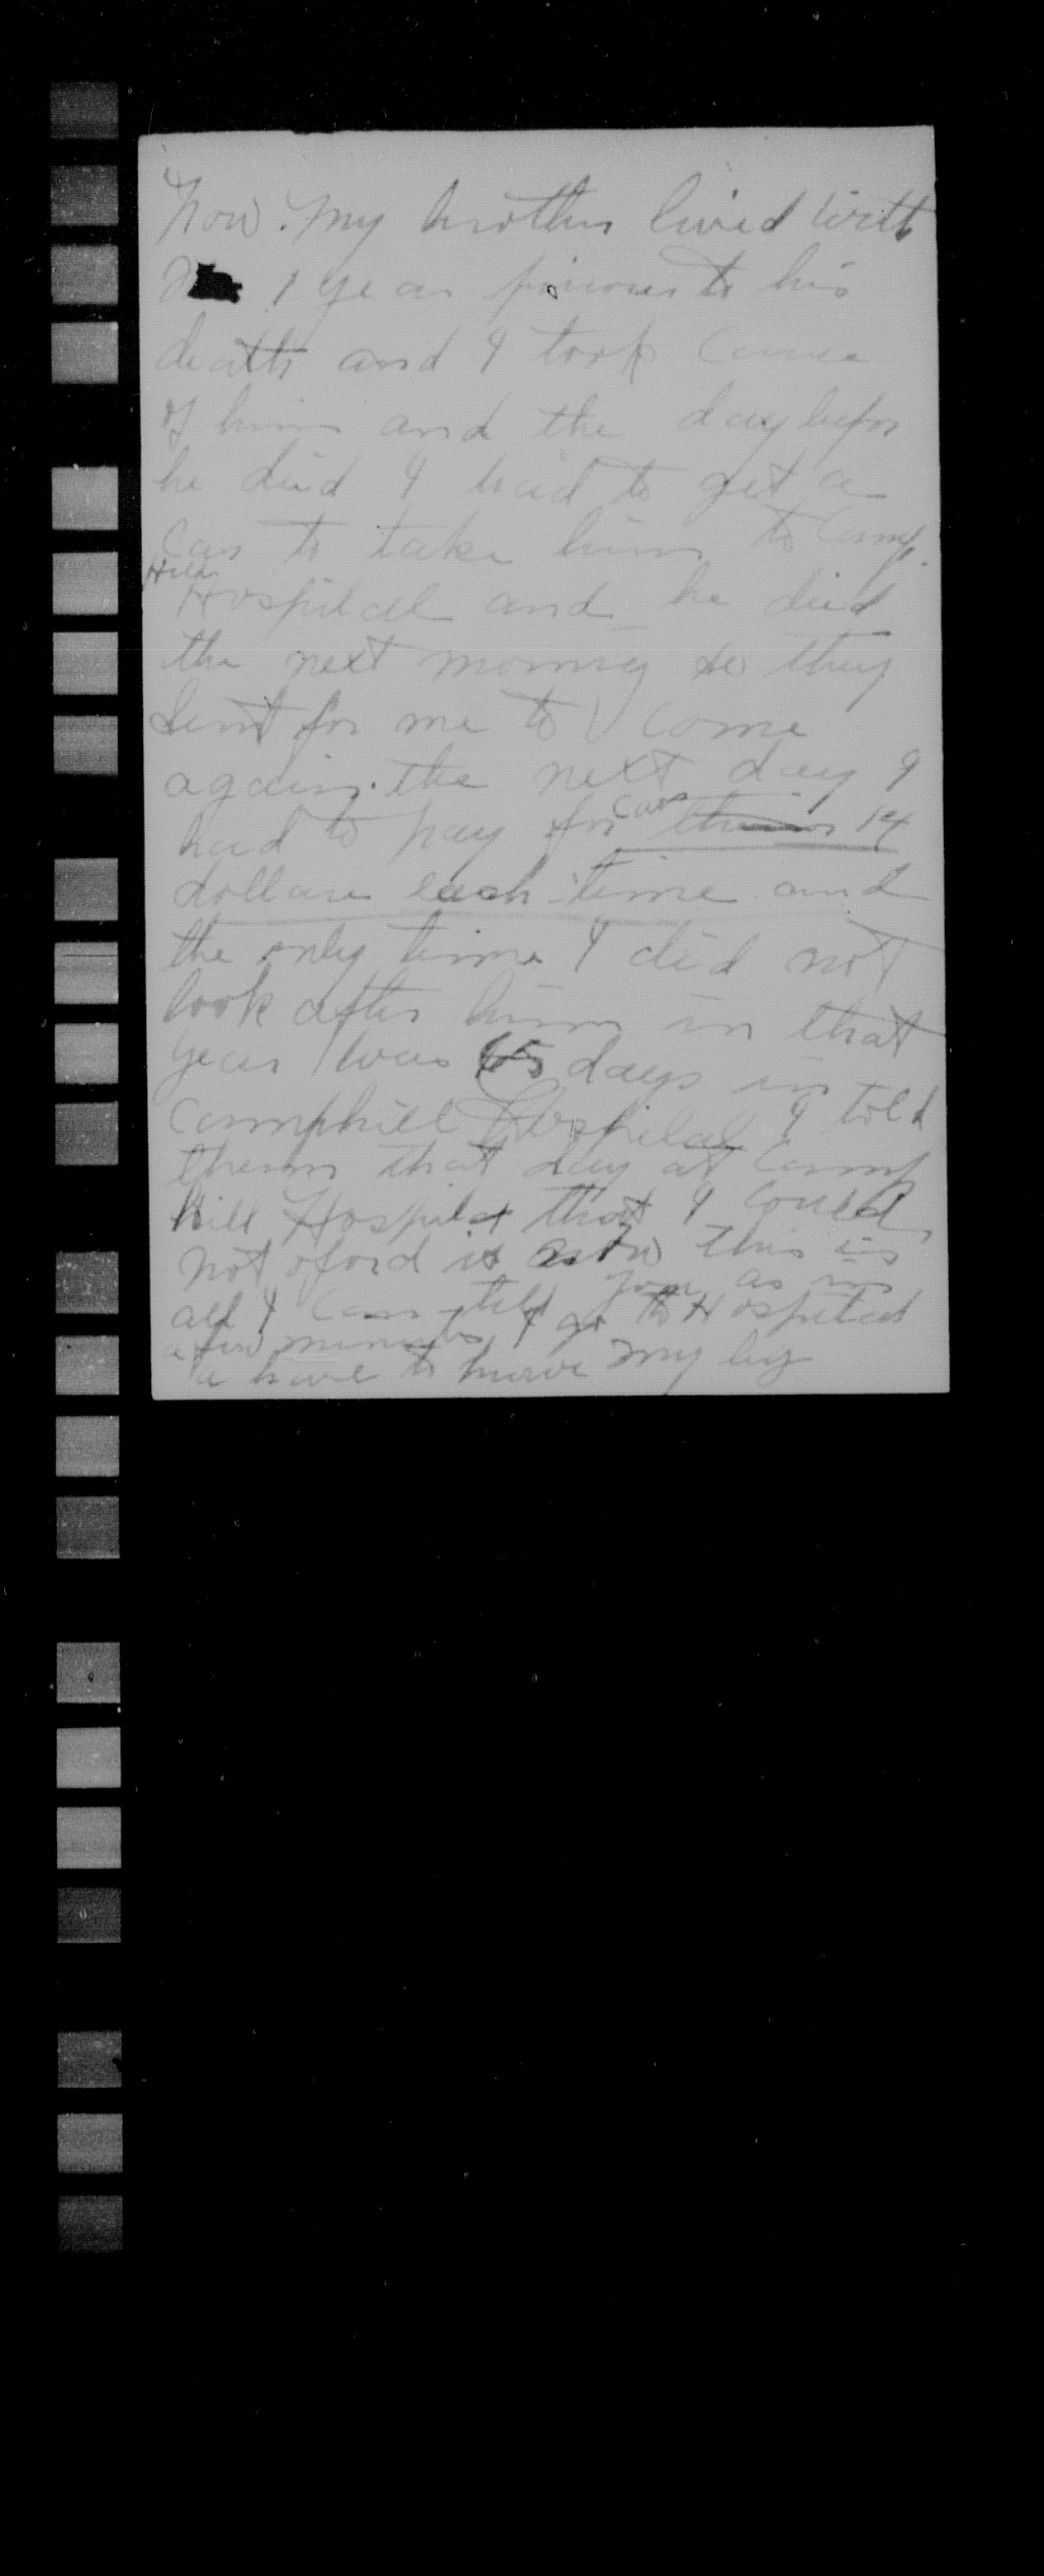 Now. My brother lived with
1 year prirous to his
death and I took Caree
of him and the day befor
he died I had to get a
Car to take him to Camp.
Hill
Hospital and he died
the next morning so they
sent for me to come
again. the next day I
had to pay for Cars 14
dollars each time and
the only time I did not
look after him in that
year was 65 days in
Camphill Hospital I told
them that day at Camp
hill Hospital that I could
not oford it now this is
all I Can tell you as in
a few minutes I go to Hospital
a have to have my leg